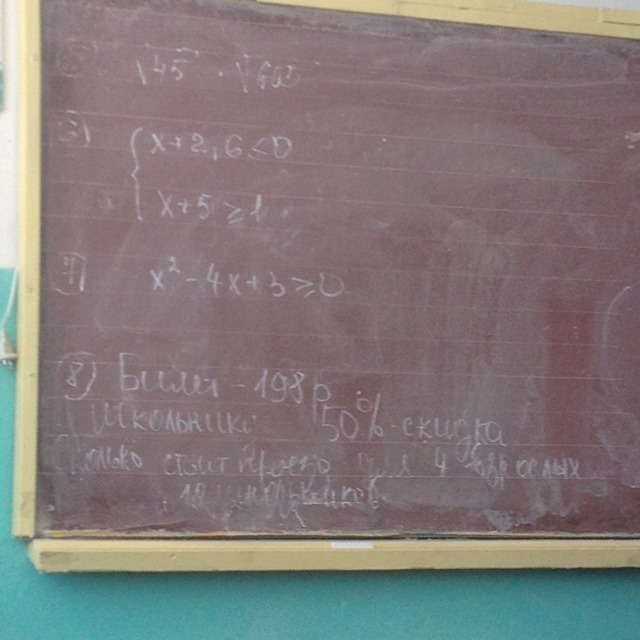 √45 · √600
6) { x+2,6≤0
x+5≥1
7) x² - 4x+3≥0
8) Билет - 198 р.
Школьник 50% скидка
Сколько стоит проезд для 4 взрослых
школьников